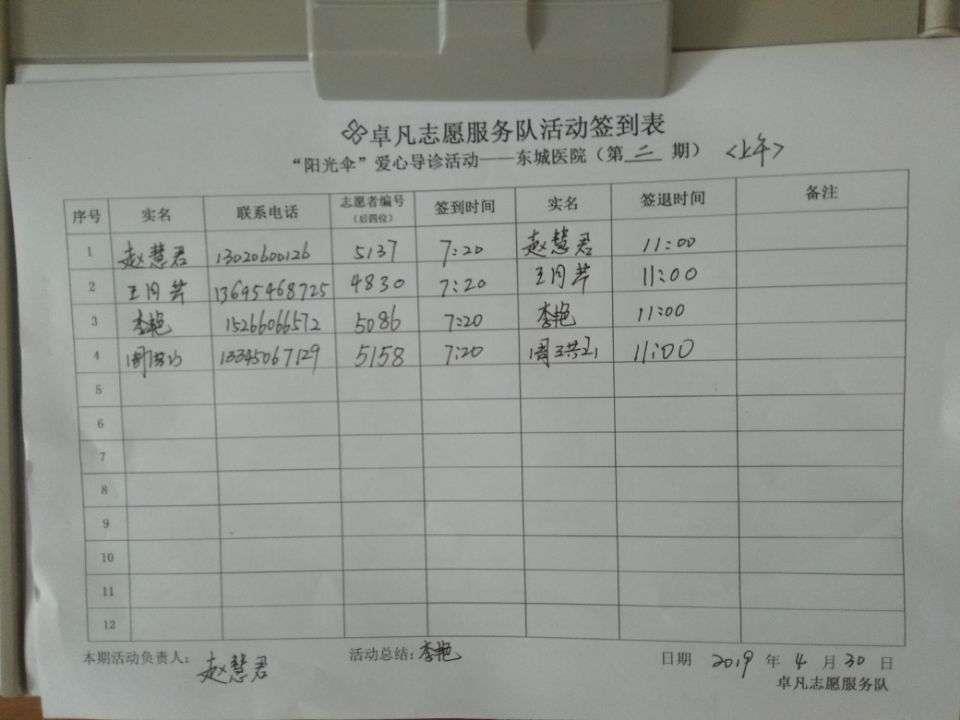 卓凡志愿服务队活动签到表
“阳光伞”爱心导诊活动——东城医院（第 二 期） <上午>
序号 实名 联系电话 志愿者编号（后四位） 签到时间 实名 签退时间 备注
1 赵慧君 13020600126 5137 7:20 赵慧君 11:00
2 王月芹 13695468725 4830 7:20 王月芹 11:00
3 李艳 15266066572 5086 7:20 李艳 11:00
4 13345067129 5158 7:20 11:00
5
6
7
8
9
10
11
12
本期活动负责人：赵慧君 活动总结：李艳 日期 2019 年 4 月 30 日
卓凡志愿服务队